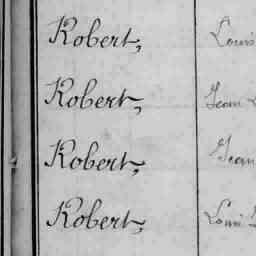 Robert, Louis
Robert, Jean
Robert, Jean
Robert, Louis